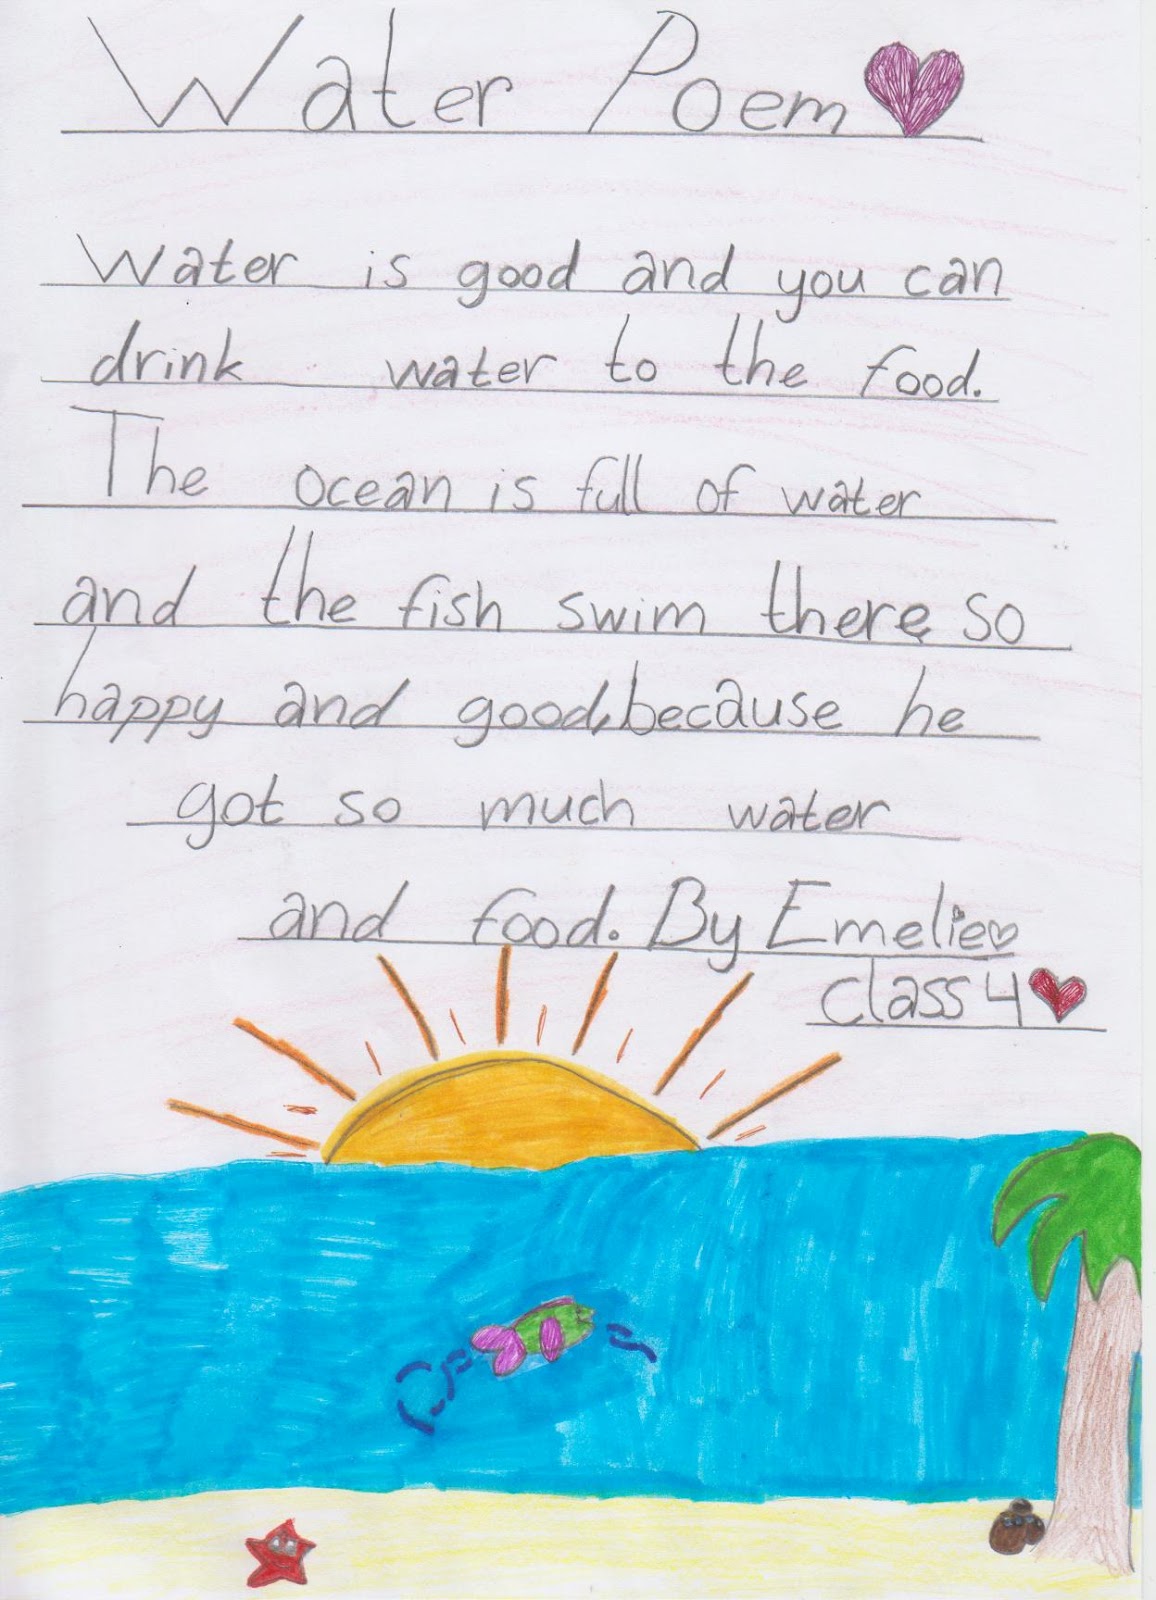 Water Poem
Water is good and you can
drink water to the food.
The ocean is full of water
and the fish swim there so
happy and good, because he
got so much water
and food. By Emelie
class 4